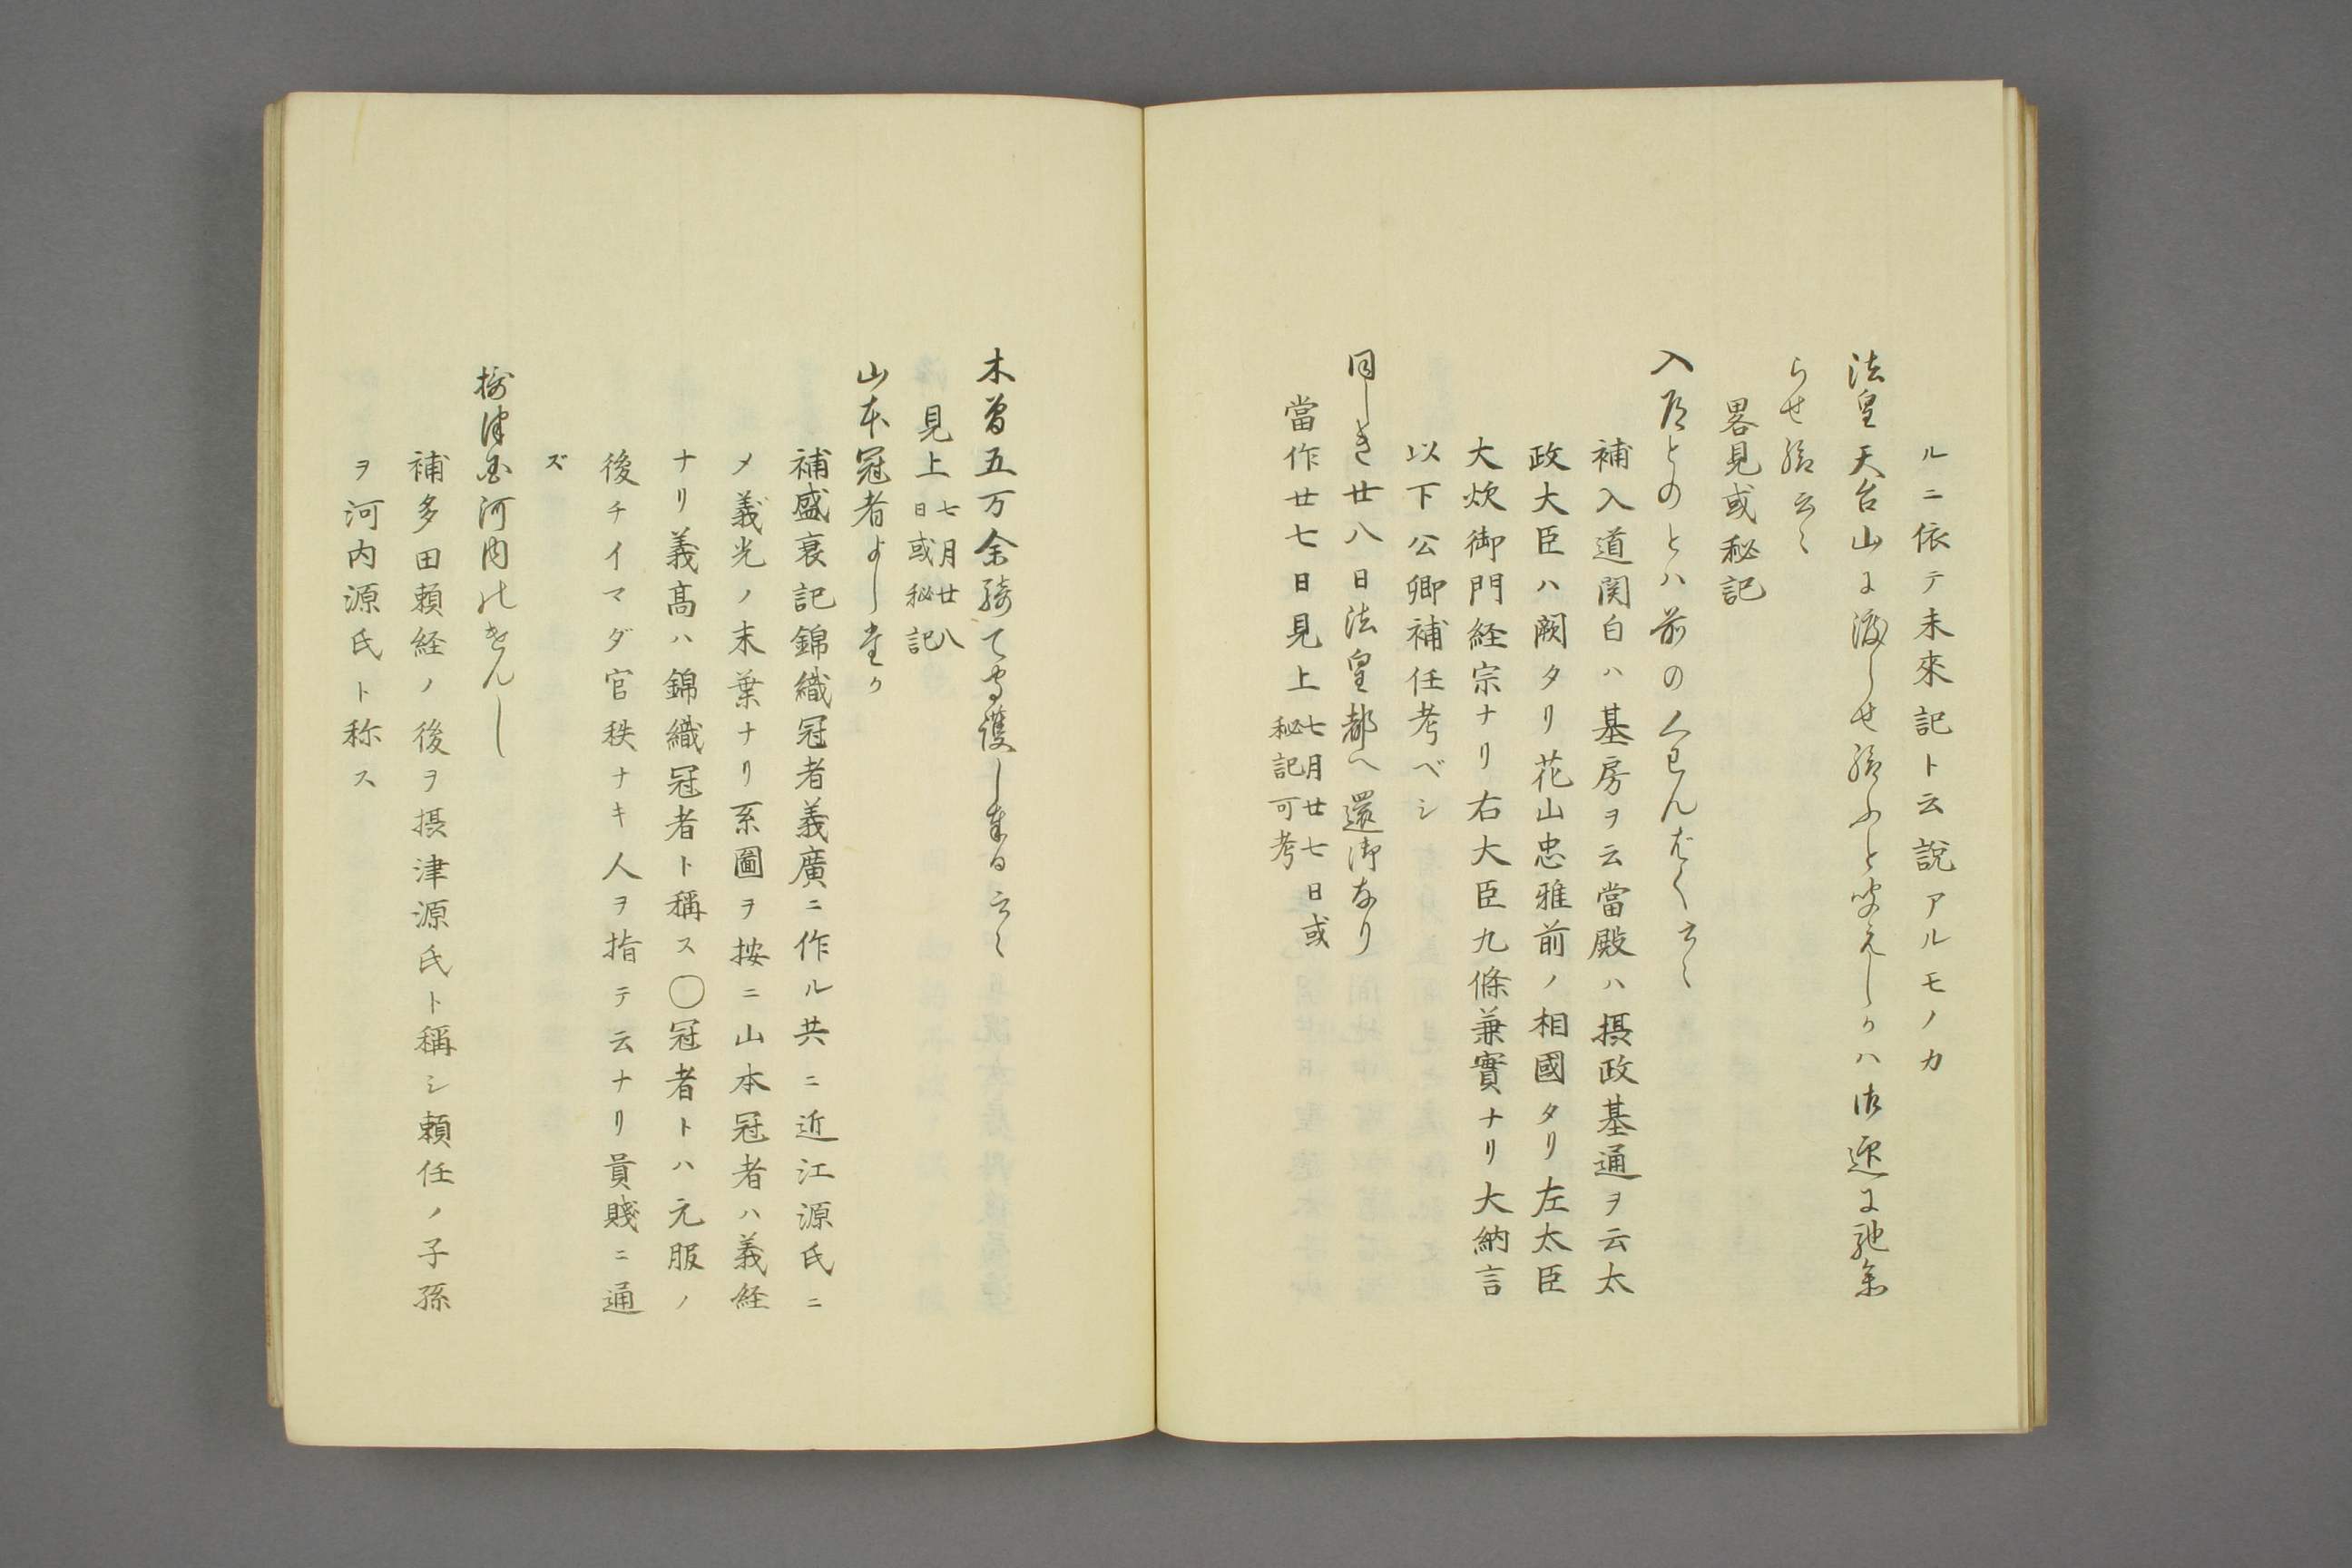 ルニ依テ未來記ト云説アルモノカ
法皇天台山に渡らせ給ふと聞えしかハ御迎に馳参
らせ給云〻
畧見或秘記
入道とのとハ前の関白
補入道関白ハ基房ヲ云當殿ハ摂政基通ヲ云太
政大臣ハ闕タリ花山忠雅前ノ相國タリ左太臣
大炊御門経宗ナリ右大臣九條兼實ナリ大納言
以下公卿補任考ベシ
同しき廿八日法皇都へ還御なり
當作廿七日見上七月廿七日或
秘記可考
木曽五万余騎て守護し奉る云〻
見上七月廿八
日或秘記
山本冠者よしたか
補盛衰記錦織冠者義廣ニ作ル共ニ近江源氏ニ
メ義光ノ末葉ナリ系圖ヲ按ニ山本冠者ハ義経
ナリ義髙ハ錦織冠者ト稱ス〇冠者トハ元服ノ
後チイマダ官秩ナキ人ヲ指テ云ナリ員賤ニ通
ズ
摂津国河内のけんし
補多田頼経ノ後ヲ摂津源氏ト稱シ頼任ノ子孫
ヲ河内源氏ト称ス